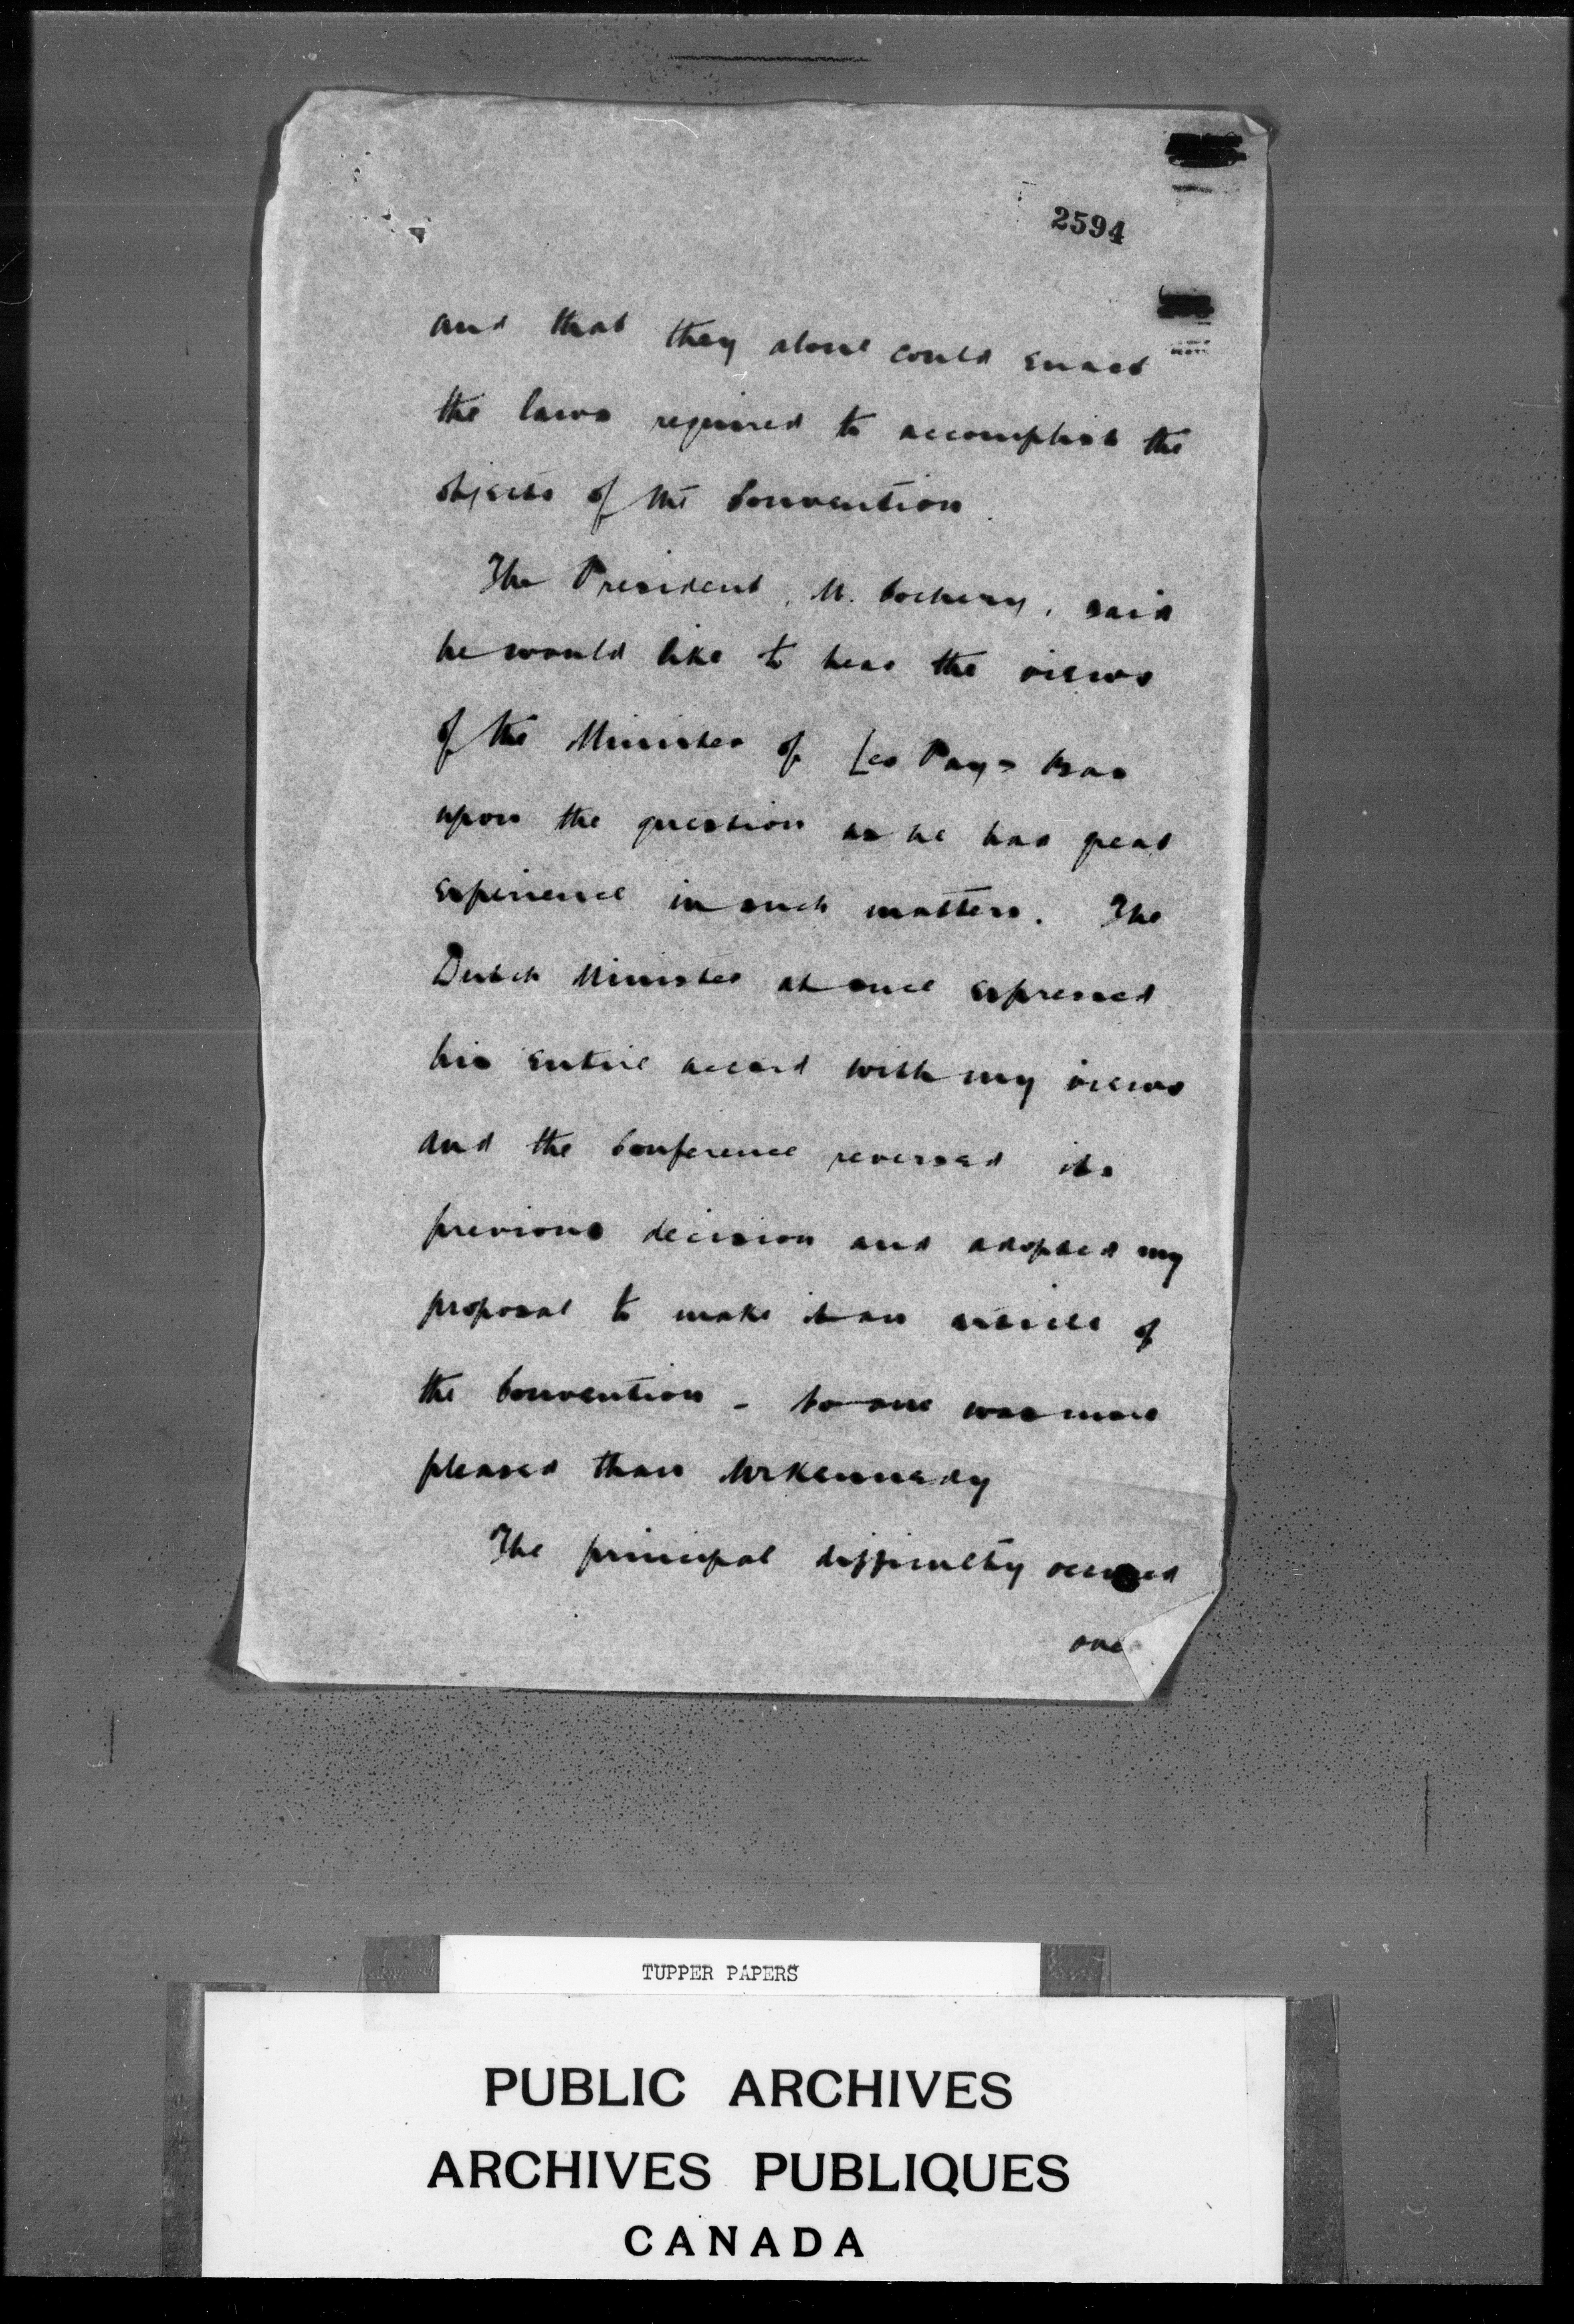 2594
and that they alone could enact
the laws required to accomplish the
objects of the Convention.
The President, M. Cochery, said
he would like to hear the views
of the Minister of Les Pays Bas
upon the question as he had great
experience in such matters. The
Dutch Minister at once expressed
his entire accord with my views
and the Conference reversed its
previous decision and adopted my
proposal to make it an article of
the Convention - No one was more
pleased than Mr Kennedy
The principal difficulty occurred
TUPPER PAPERS
PUBLIC ARCHIVES
ARCHIVES PUBLIQUES
CANADA